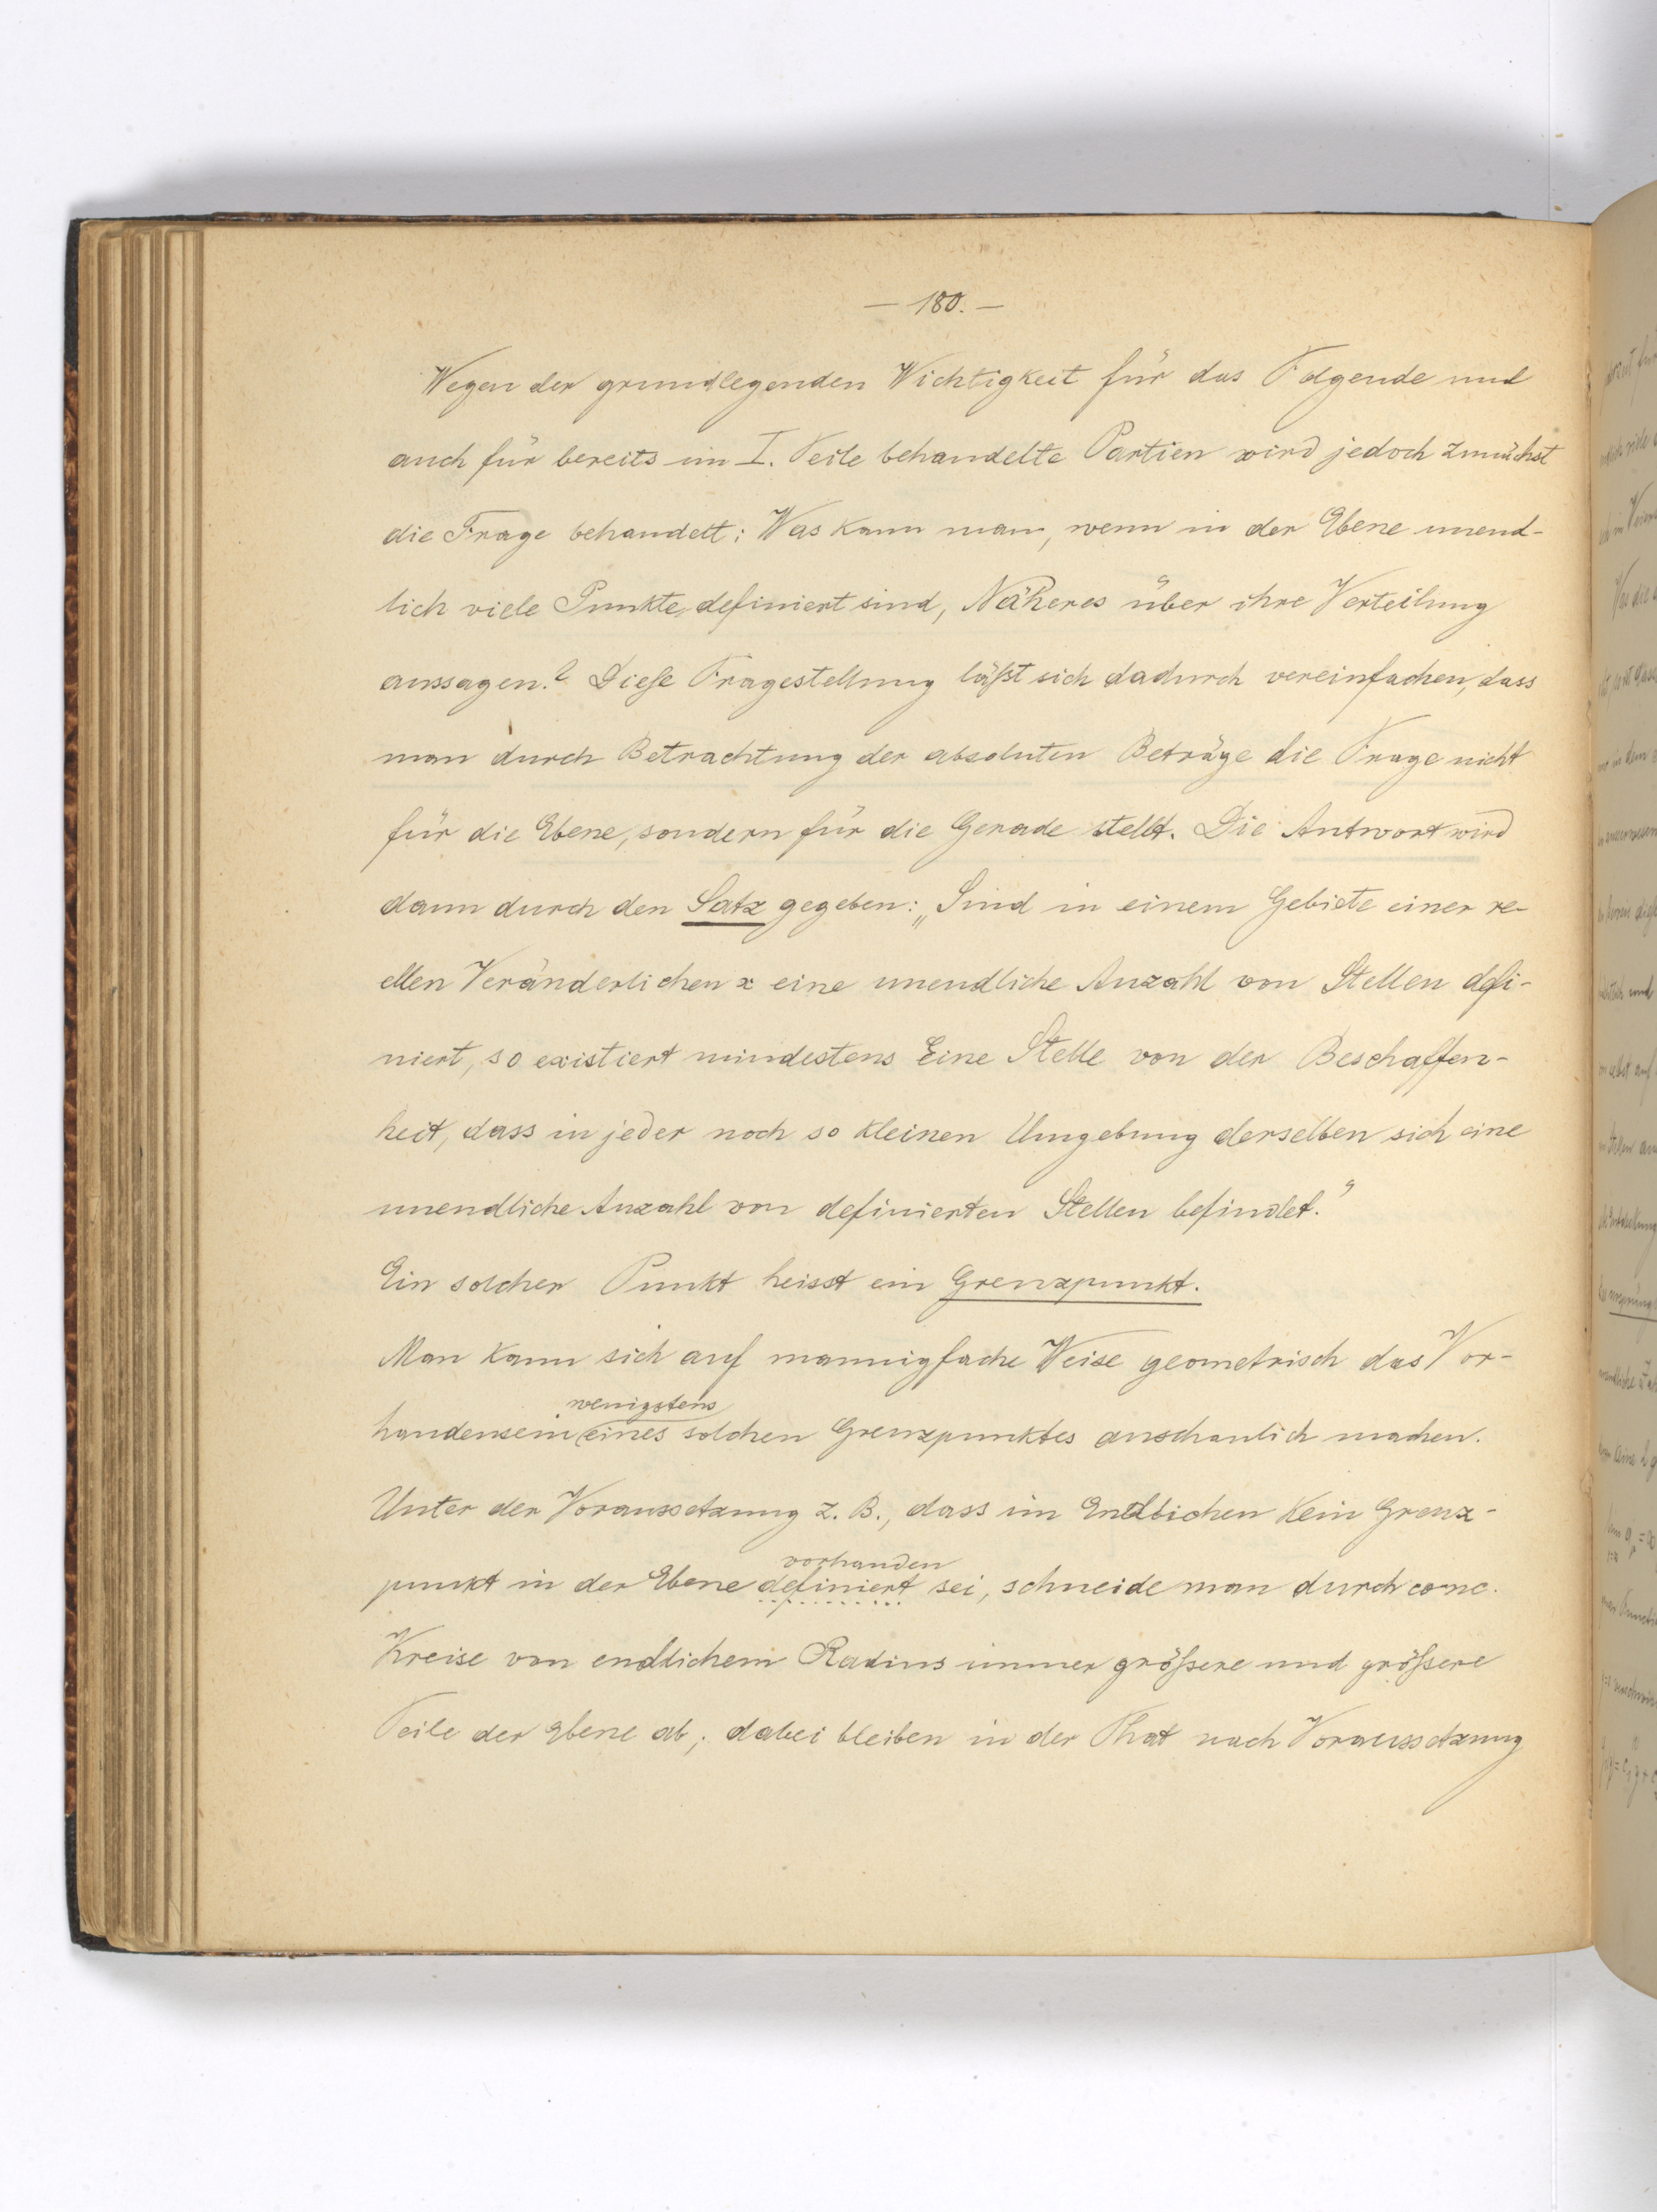 — 180. —
Wegen der grundlegenden Wichtigkeit für das Folgende und
auch für bereits im I. Teile behandelte Partien wird jedoch zunächst
die Frage behandelt: Was kann man, wenn in der Ebene unend-
lich viele Punkte definiert sind, Näheres über ihre Verteilung
aussagen? Diese Fragestellung läßt sich dadurch vereinfachen, dass
man durch Betrachtung der absoluten Beträge die Frage nicht
für die Ebene, sondern für die Gerade stellt. Die Antwort wird
dann durch den Satz gegeben: „Sind in einem Gebiete einer re-
ellen Veränderlichen x eine unendliche Anzahl von Stellen defi-
niert, so existiert mindestens Eine Stelle von der Beschaffen-
heit, dass in jeder noch so kleinen Umgebung derselben sich eine
unendliche Anzahl von definierten Stellen befindet."
Ein solcher Punkt heisst ein Grenzpunkt.
Man kann sich auf mannigfache Weise geometrisch das Vor-
wenigstens
handensein eines solchen Grenzpunktes anschaulich machen.
Unter der Voraussetzung z. B., dass im Endlichen kein Grenz-
vorhanden
punkt in der Ebene definiert sei, schneide man durch conc.
Kreise von endlichem Radius immer größere und größere
Teile der Ebene ab; dabei bleiben in der That nach Voraussetzung